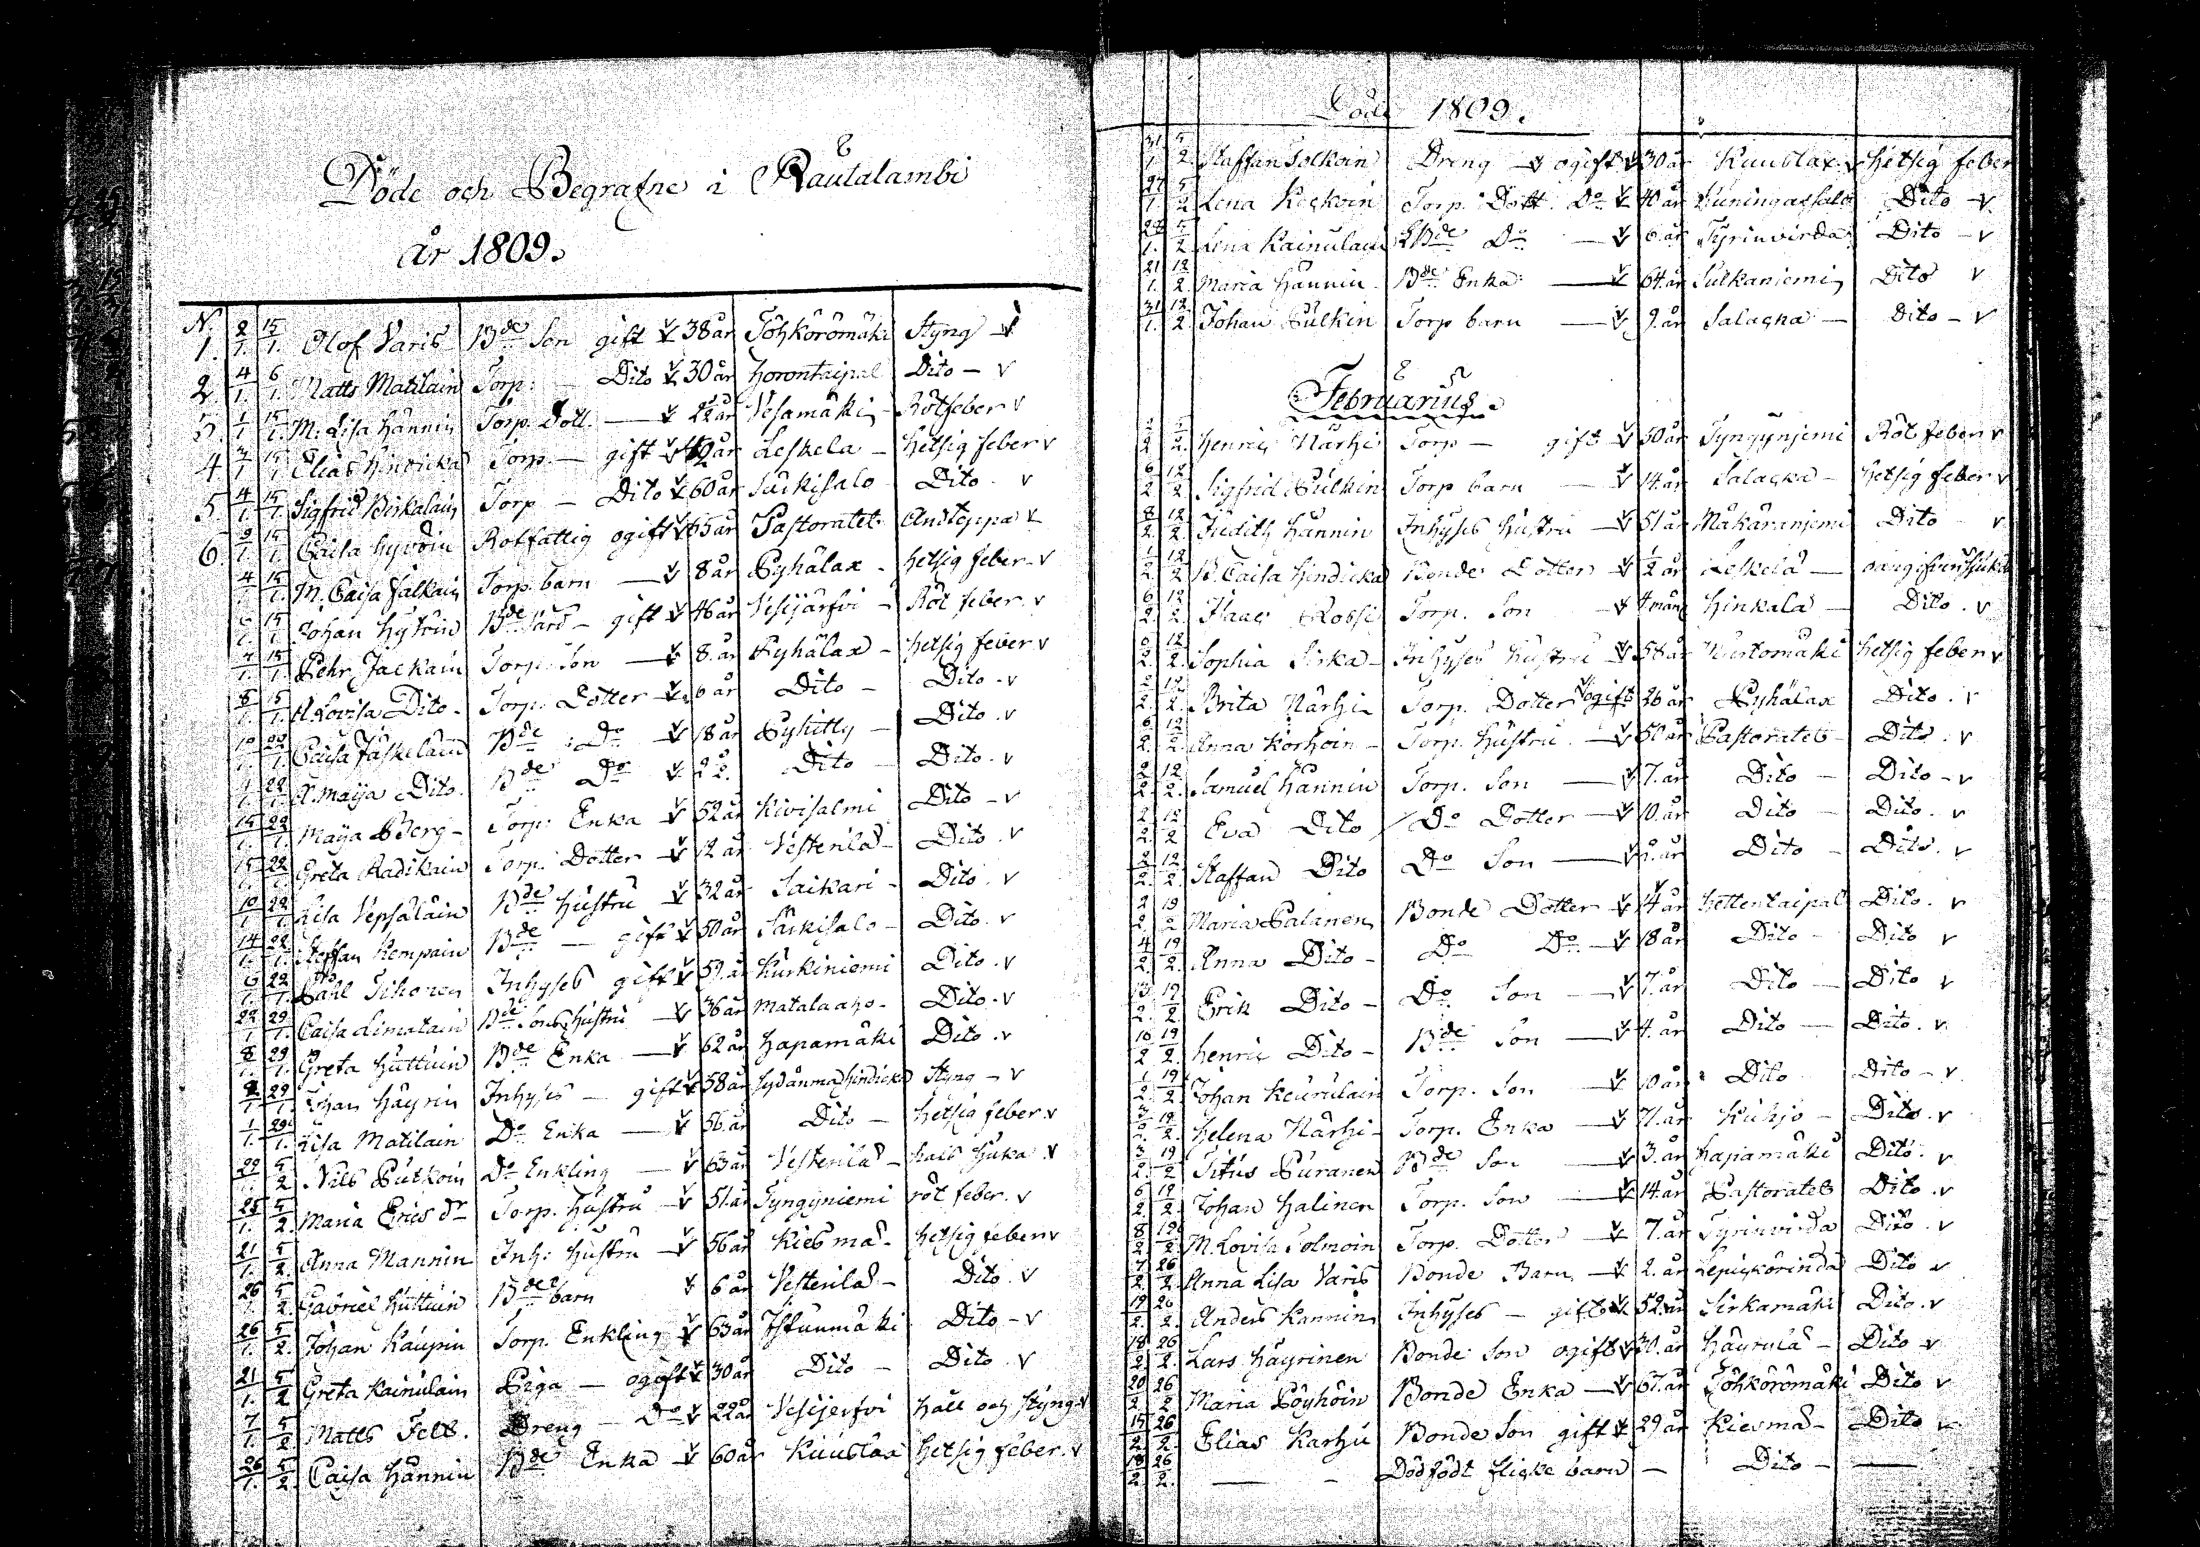 Döde och Begrafne i Rautalambi
år 1809.
N. 1. 2/1. 15/1. Olof Varis Bde Son gift 38 år Töhkörömäki Styng v
2. 4/1. 6/1. Matts Matilain Torp: Dito 30 år Horontaipal Dito v
3. 1/1 15/1. M: Lisa Hännin Torp. Dott. 22 år Vesamäki Rötfeber v
4. 15/1 Elias Hindicka Torp. gift år Leskela hetsig feber v
5. 4/1. 15/1. Sigfrid Birkalain Torp Dito 60 år Särkisalo Dito v
6. 9/1. 15/1. Caisa Hyvöin Rotfattig ogift 65 år Pastoratet Andteppa v
4/1. 15/1. M. Caisa Jalkain Torp. barn 8 år Pyhälax hetsig feber v
15/1. Johan Hytöin Bde gift 46 år Vesijärfvi Röt feber v
15/1. Pehr Jalkain Torp. Son 8 år Pyhälax hetsig feber v
8/1. 15/1. A. Lovisa Dito Torp. Dotter 6 år Dito Dito v
10/1. 22/1. Caisa Jäskeläin Bde Do 18 år Pyhitty Dito v
1/1. 22/1. A. Maija Dito Bde Do 2 Dito Dito v
15/1. 22/1. Maija Berg Torp: Enka 52 år Kivisalmi Dito v
15/1. 22/1. Greta Radikain Torp. Dotter 12 år Vesterilä Dito v
10/1. 22/1. Lisa Vepsäläin Bde hustru 32 år Saikari Dito v
14/1. 22/1. Steffan Kempain Bde gift 50 år Särkisalo Dito v
6/1. 22/1. Påhl Tikonen Inhyses gift 59 år Kurkiniemi Dito v
22/1 29/1. Caisa Limatain Bde Sons hustru 36 år Matalaaho Dito v
8/1. 29/1. Greta Huttuin Bde Enka 62 år Hapamäki Dito v
29/1. Johan Häyrin Inhyses gift 58 år Sydänma Hindicka Styng v
1/1. 29/1. Lisa Matilain Do Enka 56 år Dito hetsig feber v
29/1. 5/2 Nils Putkoin Do Enkling 63 år Vesterilä hals sjuka v
25/1. 5/2. Maria Erics dr Torp. hustru 51 år Tyngyniemi röt feber v
21/1. 5/2. Anna Mannin Inh: hustru 56 år Kiesmä hetsig feber v
26/1. 5/2. Gabriel Huttuin Bde barn 6 år Vesterilä Dito v
26/1. 5/2. Johan Kaupin Torp. Enkling 63 år Istunmäki Dito v
21/1. 5/2 Greta Kainulain Piga ogift 30 år Dito Dito v
7/1. 5/2 Matts Felt. Dreng Do 22 år Vesijerfvi Håll och styng v
26/1. 5/2. Caisa Hännin Bde Enka 60 år Kuuslax hetsig feber v
Döde 1809.
31/1. 5/2. Staffan Tolkoin Dreng ogift 30 år Kuuslax hetsig feber
27/1. 5/2 Lena Kockoin Torp. Dott. Do 40 år Kuningassalo Dito v
24/1. 5/2. Lena Kainulain Bde Do 6 år Tyrinvirda Dito v
21/1. 12/2 Maria Hännin Bde Enka 64 år Sulkaniemi Dito v
31/1. 12/2 Johan Pulkin Torp barn 9 år Salacka Dito v
Februarius.
5/2. Henric Närhi Torp gift 50 år Tyngyniemi Röt feber v
6/2 12/2. Sigfrid Pulkin Torp barn 14 år Salacka hetsig feber v
8/2 12/2. Judith Hännin Inhyses hustru 51 år Makaraniemi Dito v
1/2 12/2. B Caisa Hindicka Bonde Dotter 1/2 år Leskelä
6/2. 12/2. Isaac Rossi Torp. Son 4 mån Hinkala Dito v
6/2. 12/2. Sophia Sirka Inhyses hustru 58 år hetsig feber v
2/2. 12/2. Brita Närhi Torp. Dotter ogift 26 år Pyhälax Dito v
6/2. 12/2. Anna Korhoin Torp. hustru 50 år Pastoratet Dito v
2/2. 12/2. Samuel Hännin Torp. Son 7 år Dito Dito v
2/2. 12/2 Eva Dito Do Dotter 10 år Dito Dito v
2/2. 12/2. Staffan Dito Do Son år Dito Dito v
2/2 19/2 Maria Palanen Bonde Dotter 14 år Hettentaipal Dito v
4/2. 19/2. Anna Dito Do Do 18 år Dito Dito v
13/2. 19/2 Erik Dito Do Son 7 år Dito Dito v
16/2 19/2. Henric Dito Bde Son 4 år Dito Dito v
1/2. 19/2. Johan Keurulain Torp. Son 10 år Dito Dito v
3/2. 19/2. Helena Närhi Torp. Enka 71 år Kuhjo Dito v
3/2. 19/2 Titus Puranen Bde Son 3 år Hapamäki Dito v
6/2. 19/2. Johan Halinen Torp. Son 14 år Pastoratet Dito v
8/2 19/2. M. Lovisa Tolmoin Torp. Dotter 7 år Tyrinvirda Dito v
7/2 26/2. Anna Lisa Varis Bonde Barn 2 år Lepickörinda Dito v
19/2. 26/2. Anders Kannin Inhyses gift 52 år Sirkamäki Dito v
18/2 26/2. Lars Häyrinen Bonde Son ogift 30 år Häyrylä Dito v
20/2 26/2 Maria Pöyhöin Bonde Enka 67 år Töhkörömäki Dito v
15/2. 26/2. Elias Karhu Bonde Son gift 29 år Kiesmä Dito v
18/2 26/2. Dödfödt flicke barn Dito